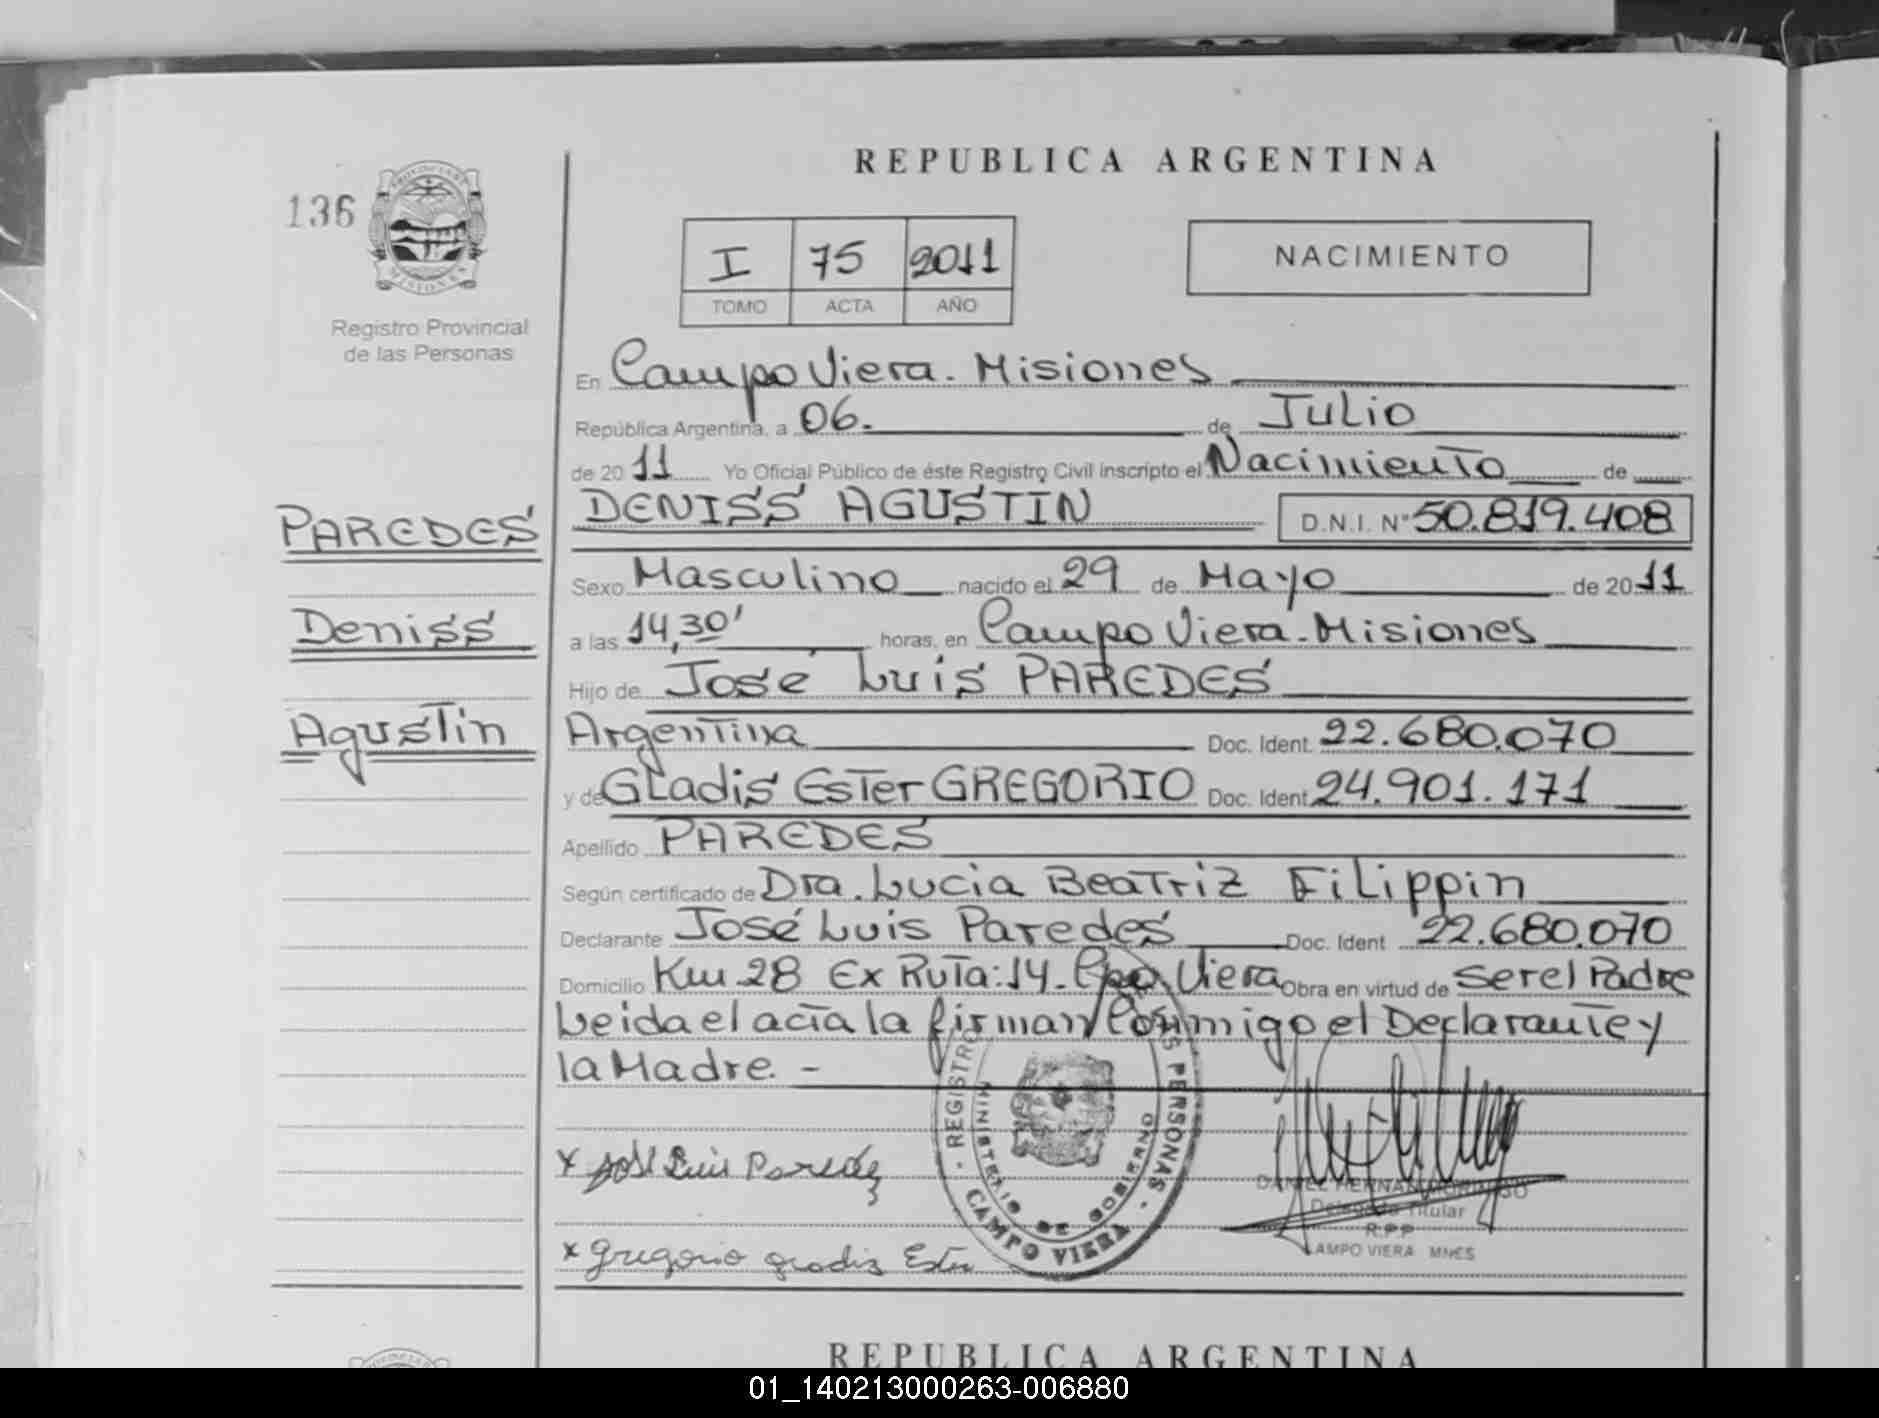 REPUBLICA ARGENTINA
136
PROVINCIA DE
MISIONES
Registro Provincial
de las Personas
I 75 2011
TOMO ACTA AÑO
NACIMIENTO
En Campo Viera. Misiones
República Argentina, a 06. de Julio
de 2011 Yo Oficial Público de éste Registro Civil inscripto el Nacimiento de
DENISS AGUSTIN D.N.I. N° 50.819.408
PAREDES
Sexo Masculino nacido el 29 de Mayo de 2011
Deniss
a las 14,30' horas, en Campo Viera. Misiones
Hijo de José Luis PAREDES
Agustin
Argentina Doc. Ident. 22.680.070
y de Gladis Ester GREGORIO Doc. Ident. 24.901.171
Apellido PAREDES
Según certificado de Dra. Lucia Beatriz Filippin
Declarante José Luis Paredes Doc. Ident 22.680.070
Domicilio Km 28 Ex Ruta: 14. Cpo. Viera Obra en virtud de ser el Padre
Leida el acta la firman Conmigo el Declarante y
la Madre. -
REGISTRO PERSONAS
MINISTERIO DE GOBIERNO
CAMPO VIERA
x José Luis Paredez
DANIEL HERNAN
Delegado Titular
R.P.P
CAMPO VIERA MNES
x Gregorio gradis Ester
REPUBLICA ARGENTINA
01_140213000263-006880